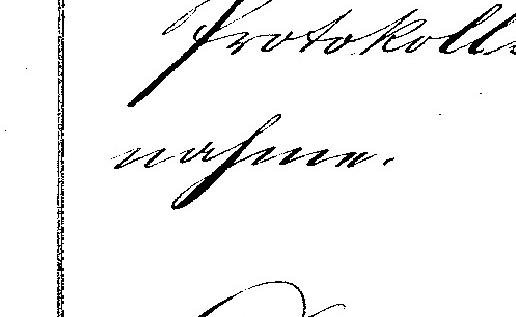 Protokoll
nahme.